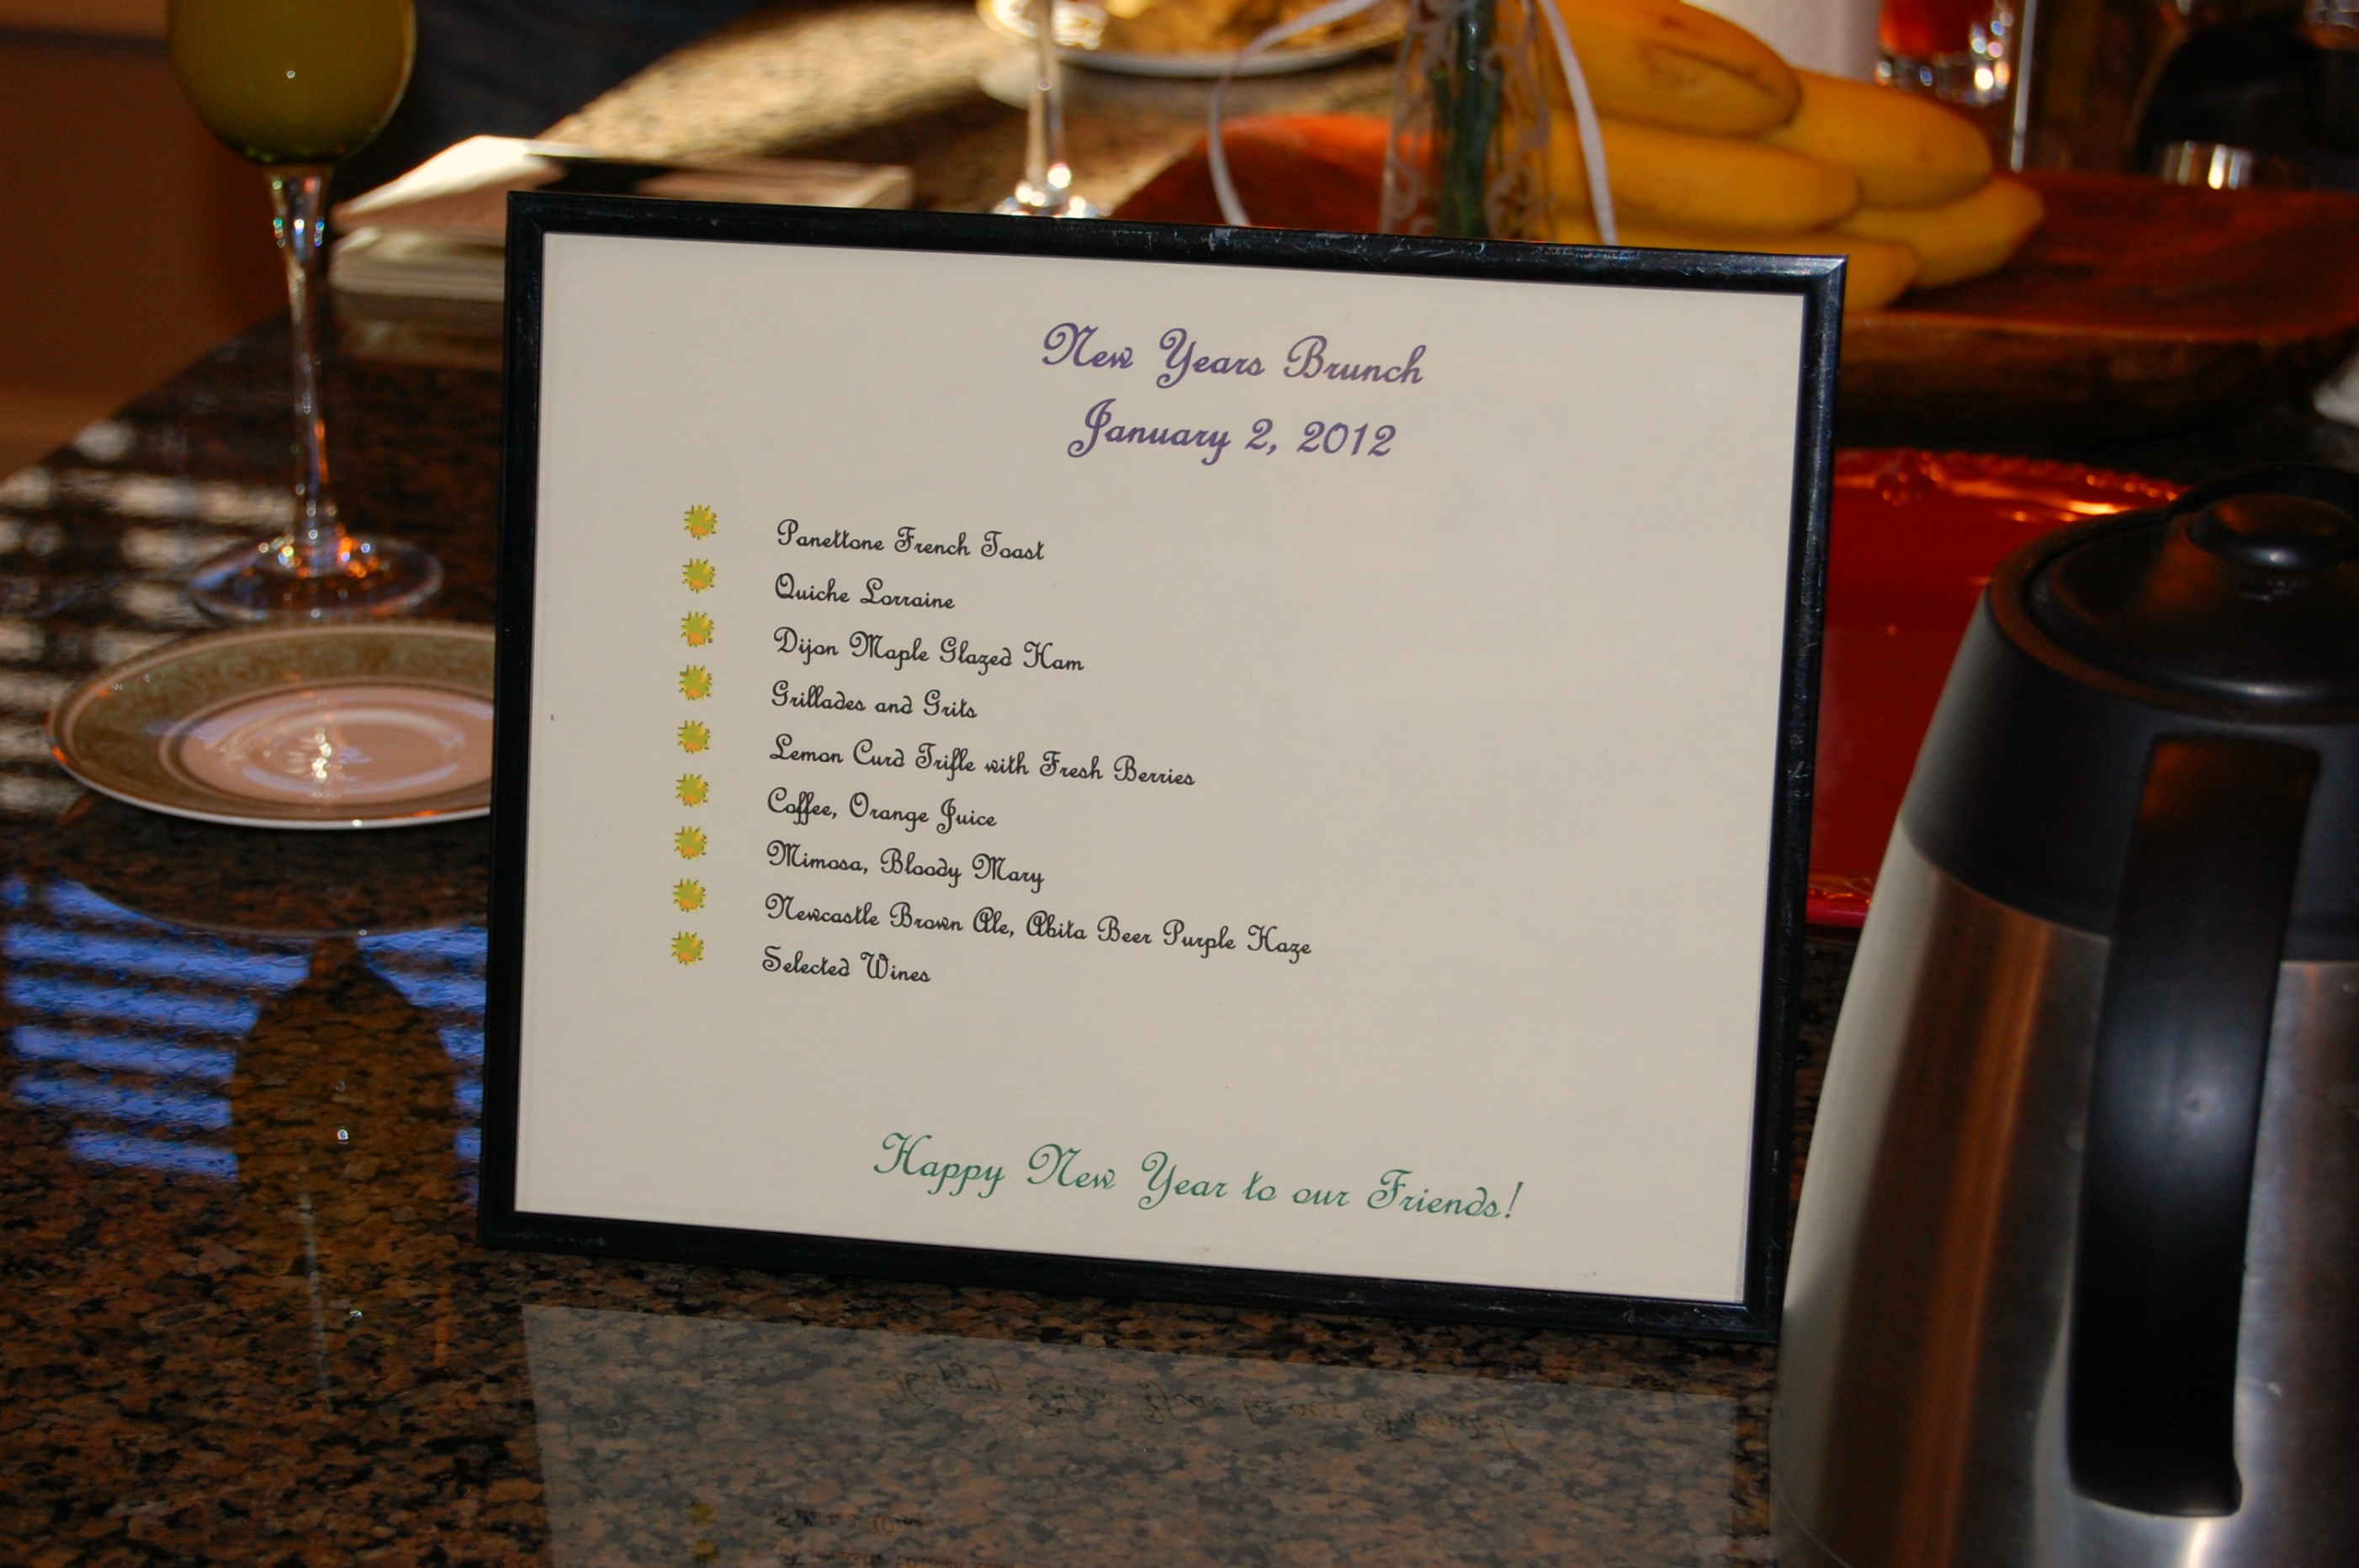 New Years Brunch
January 2, 2012
Panettone French Toast
Quiche Lorraine
Dijon Maple Glazed Ham
Grillades and Grits
Lemon Curd Trifle with Fresh Berries
Coffee, Orange Juice
Mimosa, Bloody Mary
Newcastle Brown Ale, Abita Beer Purple Haze
Selected Wines
Happy New Year to our Friends!